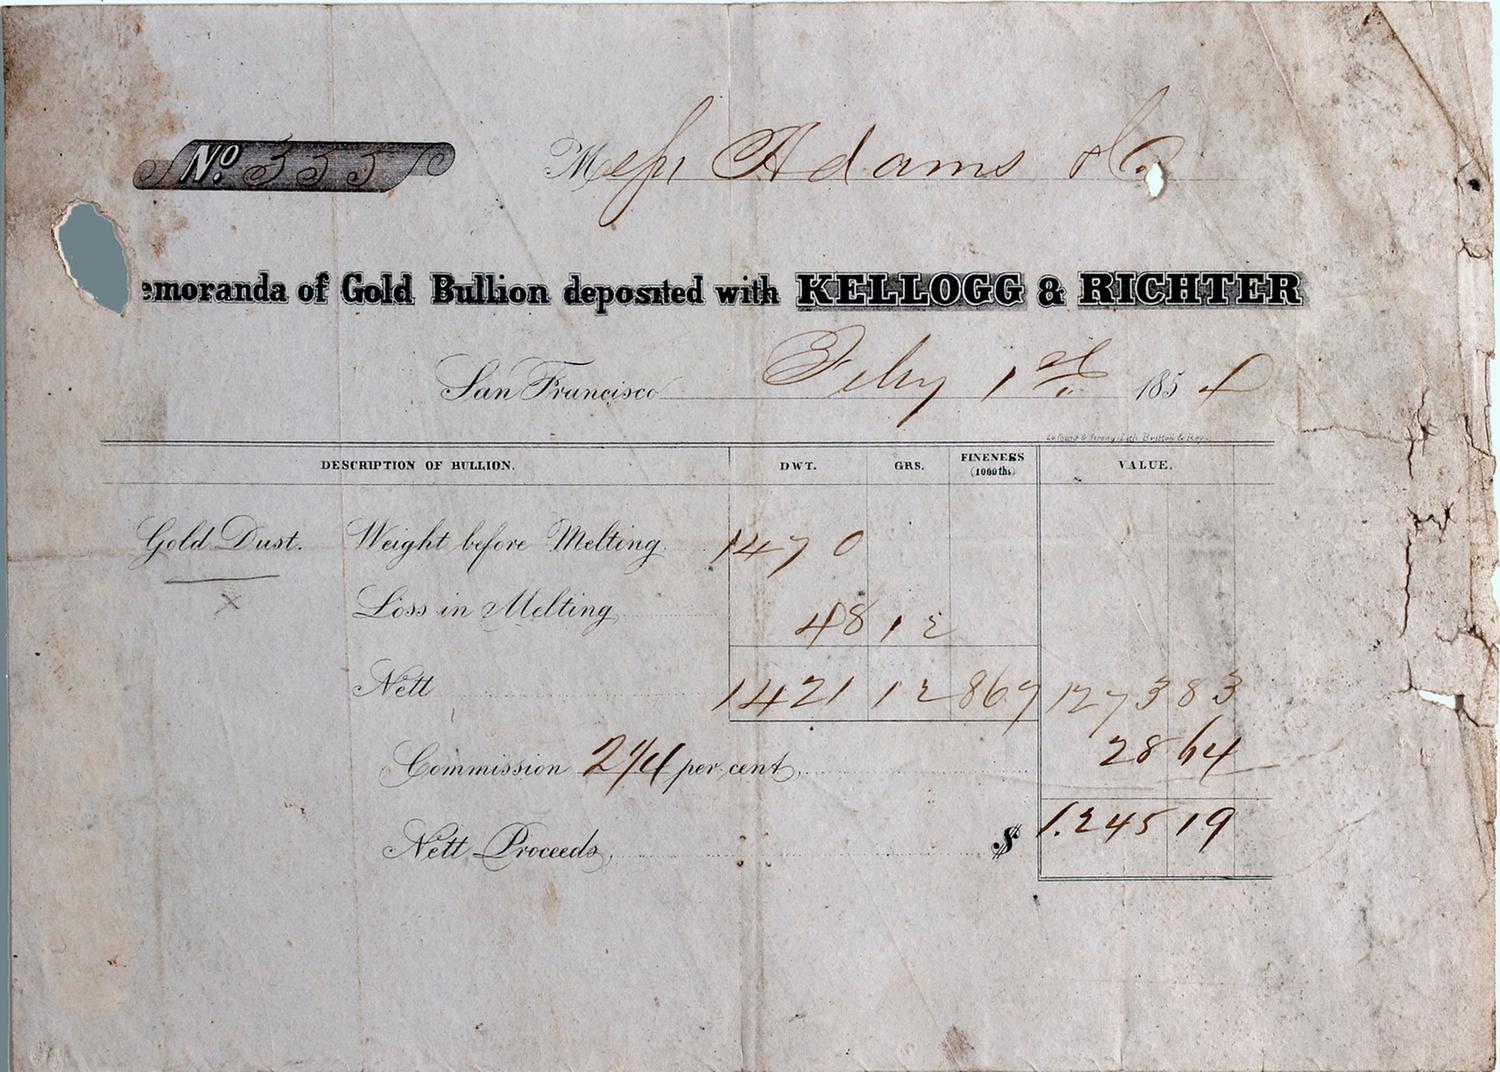 No. 355
Messrs Adams & Co.
emoranda of Gold Bullion deposited with KELLOGG & RICHTER
San Francisco Feby 1st 1854
DESCRIPTION OF BULLION. DWT. GRS. FINENESS (1000ths) VALUE.
Gold Dust. Weight before Melting 1470
Loss in Melting 48 12
Nett 1421 12 867 1273 83
Commission 2 1/4 per cent, 28 64
Nett Proceeds, $ 1.245 19